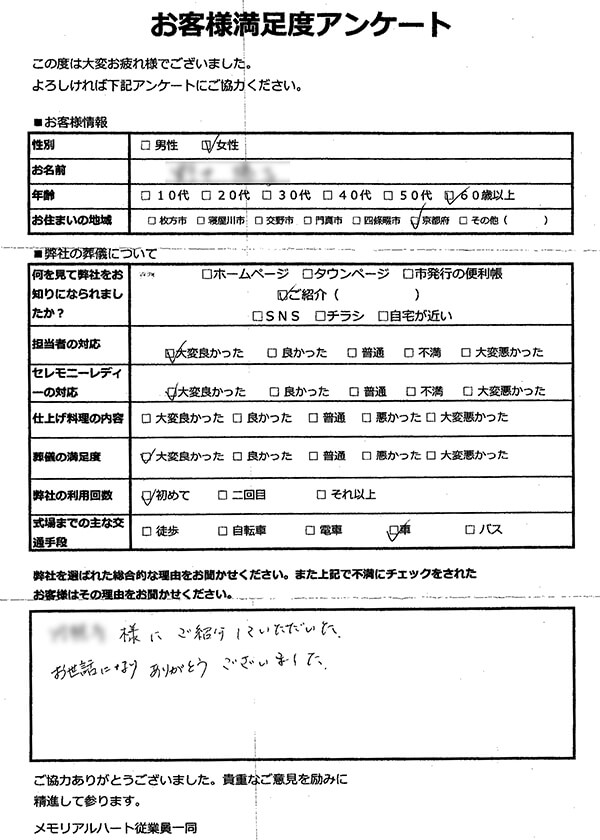 お客様満足度アンケート
この度は大変お疲れ様でございました。
よろしければ下記アンケートにご協力ください。
■お客様情報
性別 □ 男性 ☑ 女性
お名前
年齢 □ 10代 □ 20代 □ 30代 □ 40代 □ 50代 ☑ 60歳以上
お住まいの地域 □ 枚方市 □ 寝屋川市 □ 交野市 □ 門真市 □ 四條畷市 ☑ 京都府 □ その他（ ）
■弊社の葬儀について
何を見て弊社をお知りになられましたか？ □ホームページ □タウンページ □市発行の便利帳
☑ご紹介（ ）
□SNS □チラシ □自宅が近い
担当者の対応 ☑大変良かった □ 良かった □ 普通 □ 不満 □ 大変悪かった
セレモニーレディーの対応 ☑大変良かった □ 良かった □ 普通 □ 不満 □ 大変悪かった
仕上げ料理の内容 □ 大変良かった □ 良かった □ 普通 □ 悪かった □ 大変悪かった
葬儀の満足度 ☑ 大変良かった □ 良かった □ 普通 □ 悪かった □ 大変悪かった
弊社の利用回数 ☑初めて □ 二回目 □ それ以上
式場までの主な交通手段 □ 徒歩 □ 自転車 □ 電車 ☑車 □ バス
弊社を選ばれた総合的な理由をお聞かせください。また上記で不満にチェックをされた
お客様はその理由をお聞かせください。
様に ご紹介していただいた。
お世話になり ありがとう ございました。
ご協力ありがとうございました。貴重なご意見を励みに
精進して参ります。
メモリアルハート従業員一同